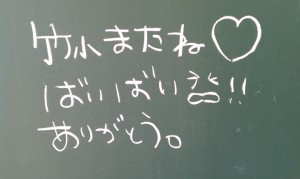 竹小またね♡
ばいばい!!
ありがとう。